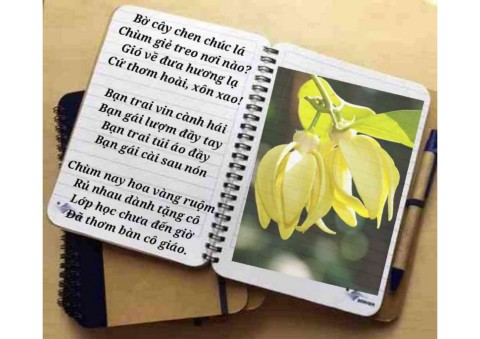 Bờ cây chen chúc lá
Chùm giẻ treo nơi nào?
Gió về đưa hương lạ
Cứ thơm hoài, xôn xao!
Bạn trai vin cành hái
Bạn gái lượm đầy tay
Bạn trai túi áo đầy
Bạn gái cài sau nón
Chùm nay hoa vàng ruộm
Rủ nhau dành tặng cô
Lớp học chưa đến giờ
Đã thơm bàn cô giáo.